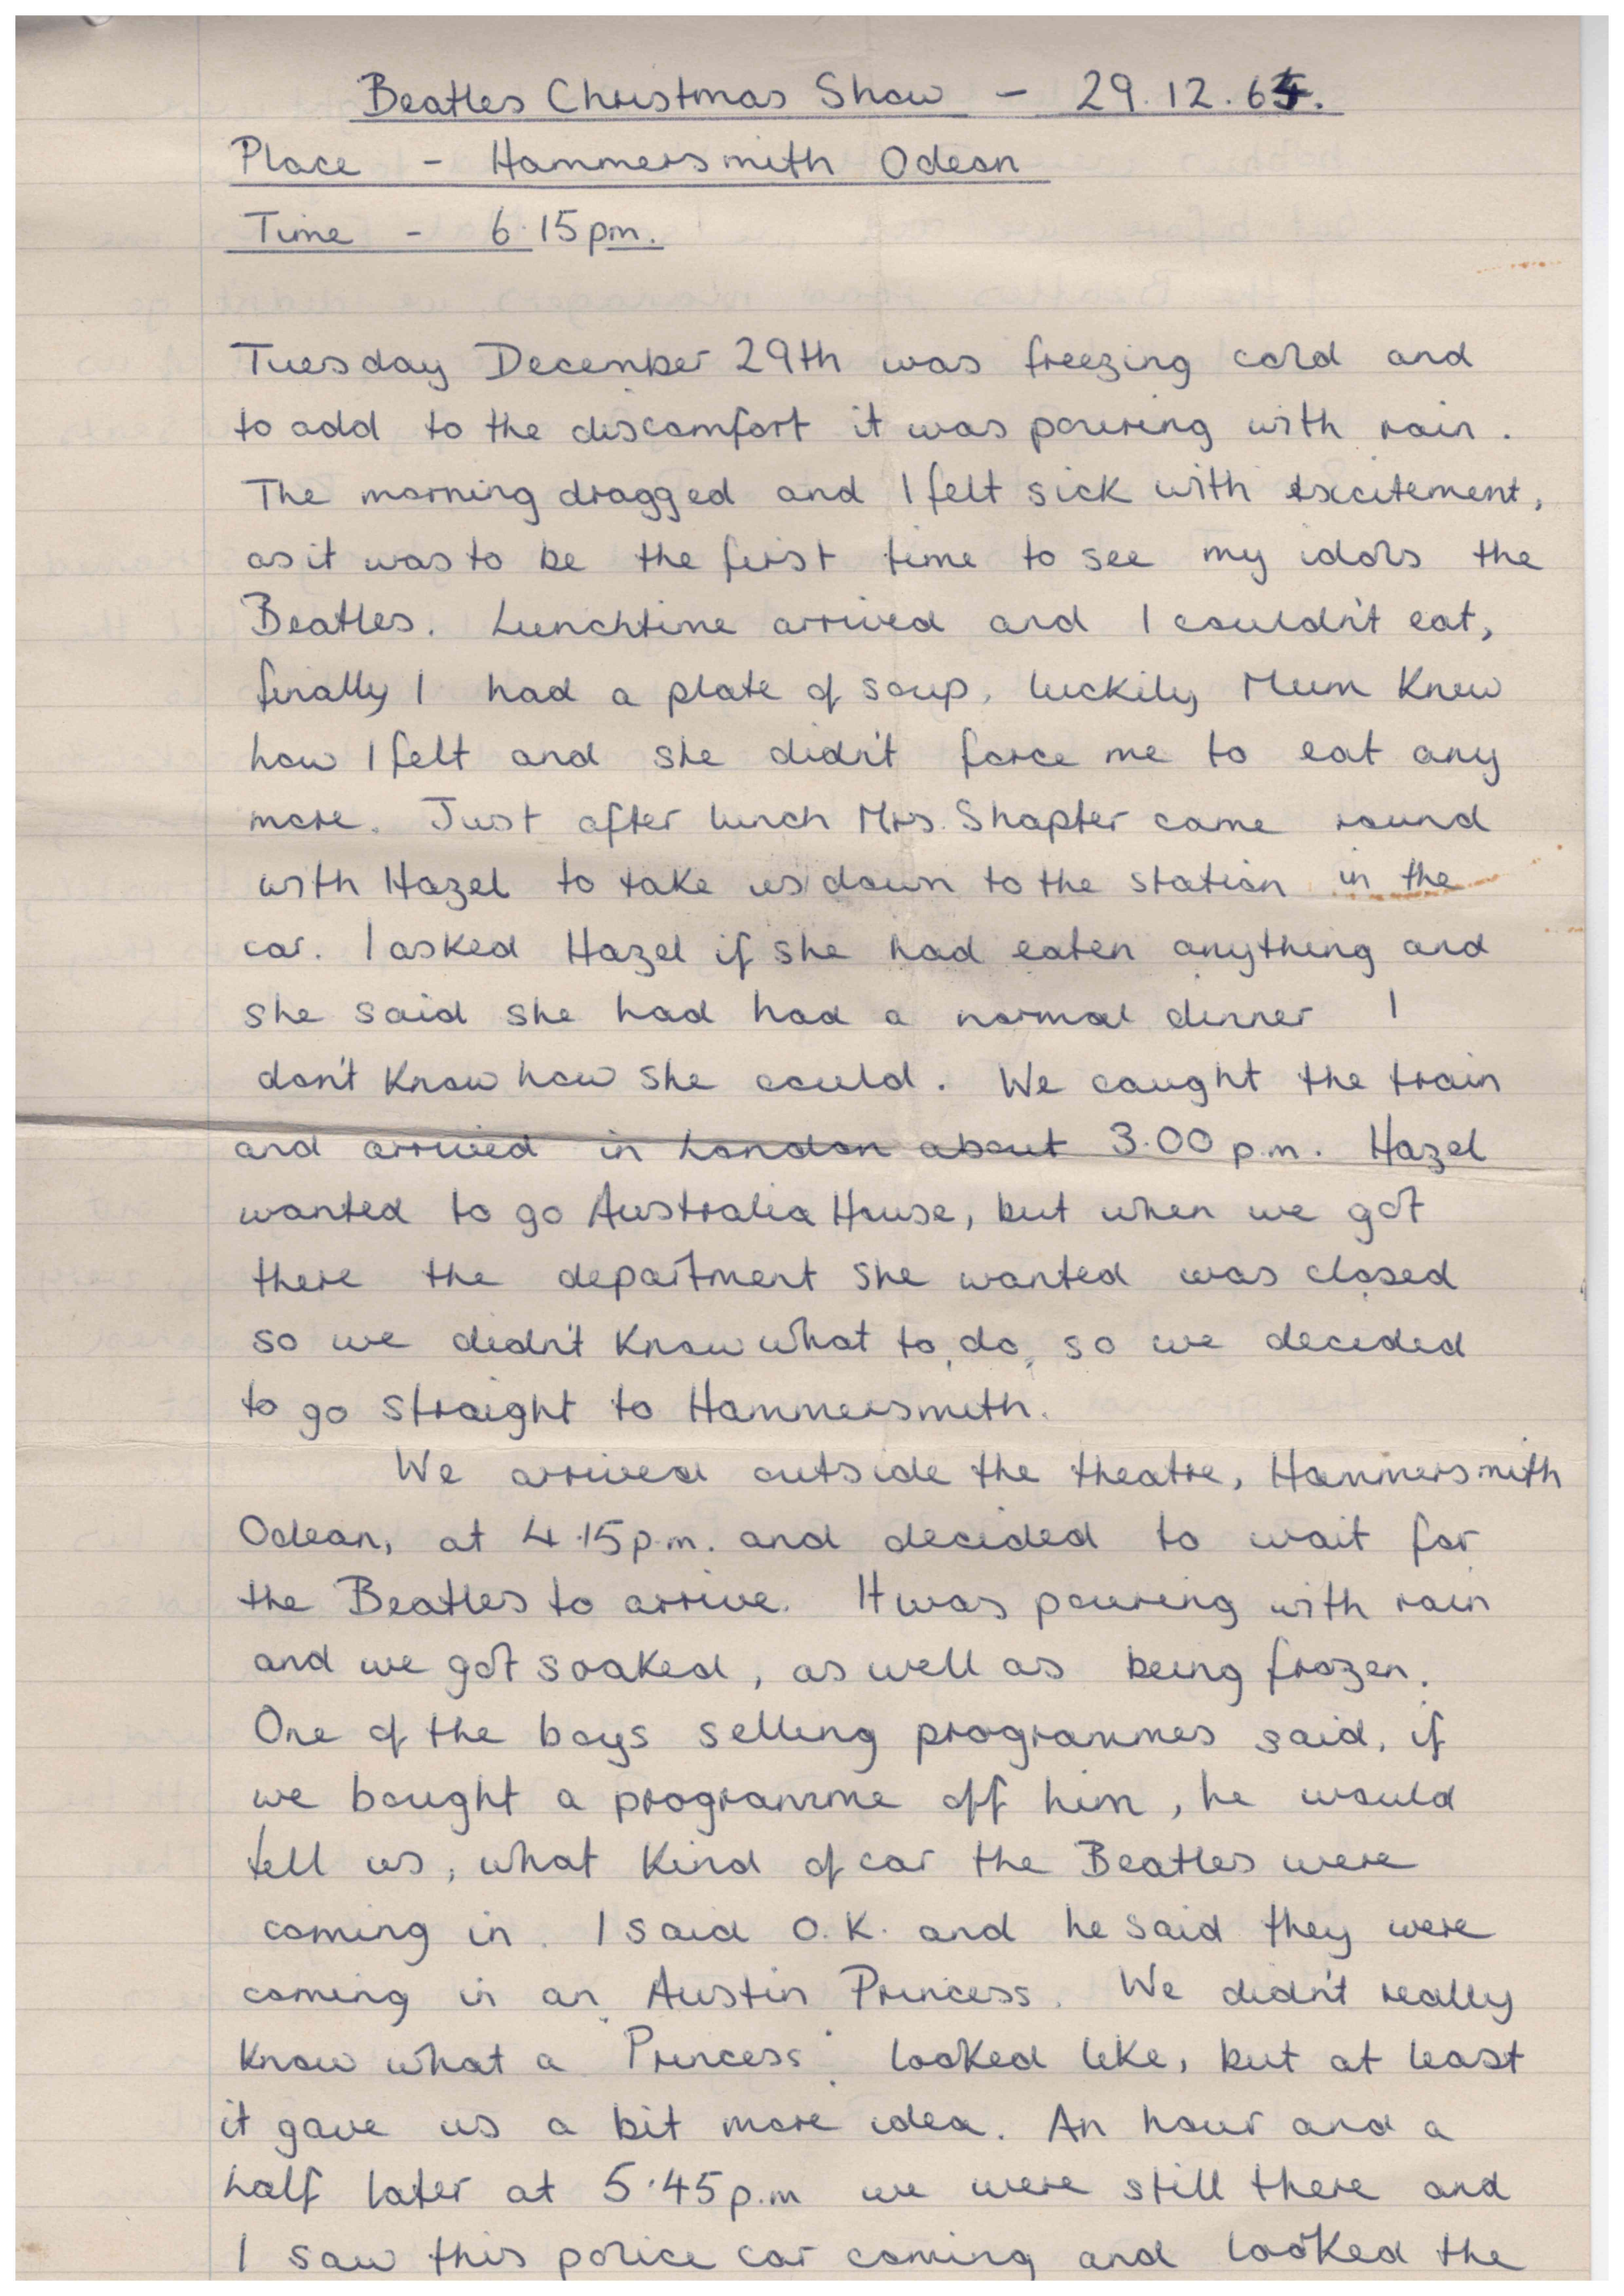 Beatles Christmas Show - 29.12.64.
Place - Hammersmith Odeon
Time - 6.15pm.
Tuesday December 29th was freezing cold and
to add to the discomfort it was pouring with rain.
The morning dragged and I felt sick with excitement,
as it was to be the first time to see my idols the
Beatles. Lunchtime arrived and I couldn't eat,
finally I had a plate of soup, luckily Mum knew
how I felt and she didn't force me to eat any
more. Just after lunch Mrs. Shapter came round
with Hazel to take us down to the station in the
car. I asked Hazel if she had eaten anything and
she said she had had a normal dinner I
don't know how she could. We caught the train
and arrived in London about 3.00 p.m. Hazel
wanted to go Australia House, but when we got
there the department she wanted was closed
so we didn't know what to do, so we decided
to go straight to Hammersmith.
We arrived outside the theatre, Hammersmith
Odeon, at 4.15p.m. and decided to wait for
the Beatles to arrive. It was pouring with rain
and we got soaked, as well as being frozen.
One of the boys selling programmes said, if
we bought a programme off him, he would
tell us, what kind of car the Beatles were
coming in. I said O.K. and he said they were
coming in an Austin Princess. We didn't really
know what a "Princess" looked like, but at least
it gave us a bit more idea. An hour and a
half later at 5.45p.m we were still there and
I saw this police car coming and looked the